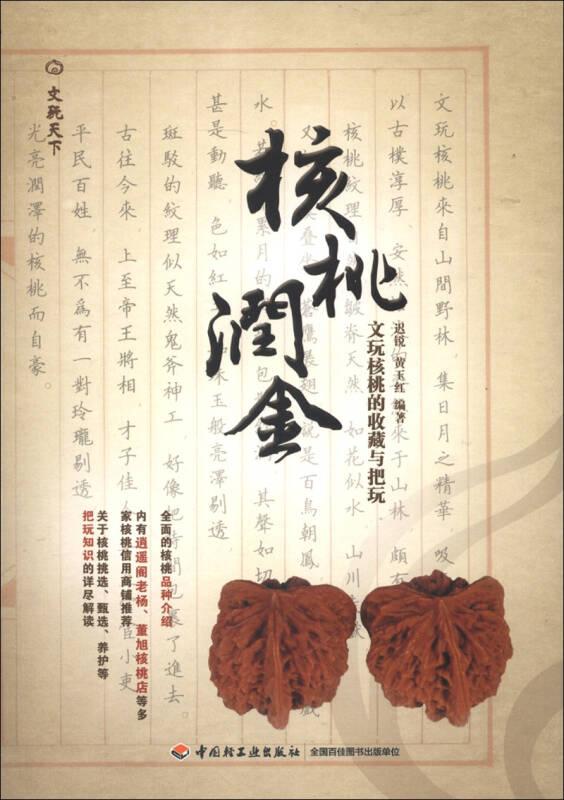 文玩天下
核桃潤金
文玩核桃的收藏与把玩
迟锐 黄玉红 编著
文玩核桃來自山間野林 集日月之精華 吸
以古樸淳厚 安然 來于山林 頗有
核桃紋理 皴脊天然 如花似水 山川
蒼鷹展翅 說是百鳥朝鳳
水 其 累月的 包 其聲如切
甚是動聽 色如紅 玉般亮澤剔透
斑駁的紋理似天然鬼斧神工 好像把時間包裹了進去。
古往今來 上至帝王將相 才子佳 官小吏
平民百姓 無不爲有一對玲瓏剔透
光亮潤澤的核桃而自豪。
全面的核桃品种介绍
内有逍遥阁老杨、董旭核桃店等多
家核桃信用商铺推荐
关于核桃挑选、甄选、养护等
把玩知识的详尽解读
中国轻工业出版社
全国百佳图书出版单位